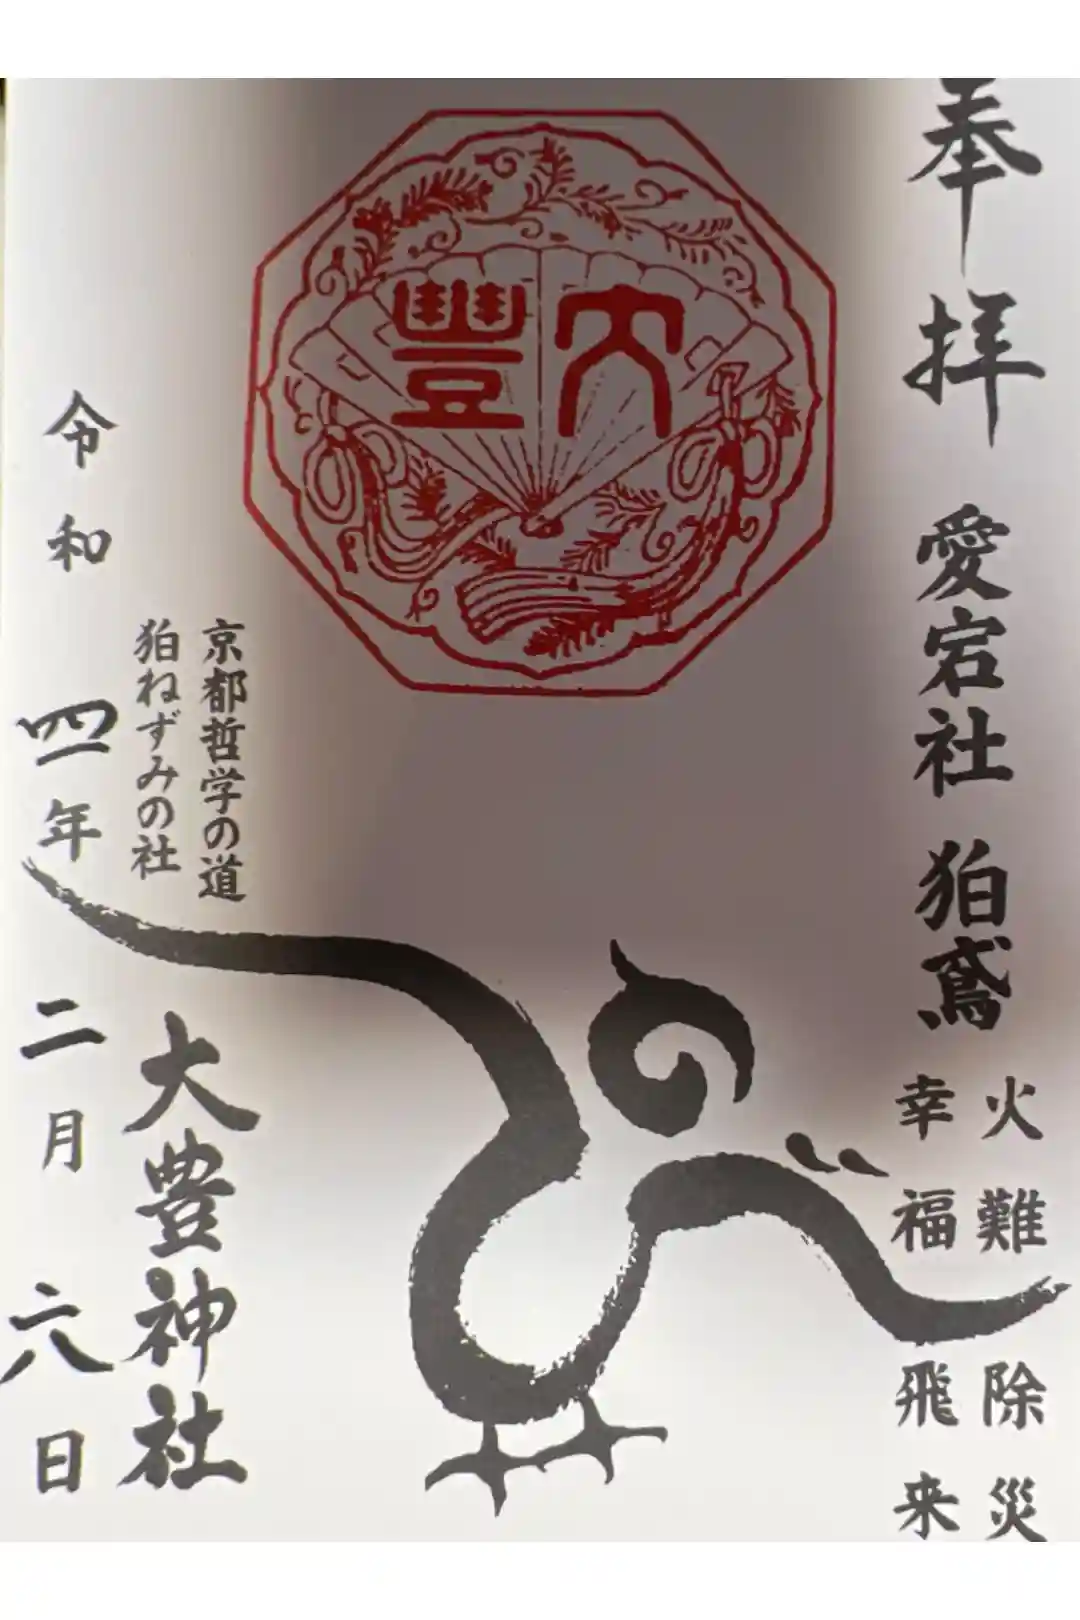 奉拝
愛宕社 狛鳶
火難除災
幸福飛来
大豐
京都哲学の道
狛ねずみの社
大豊神社
令和四年二月六日